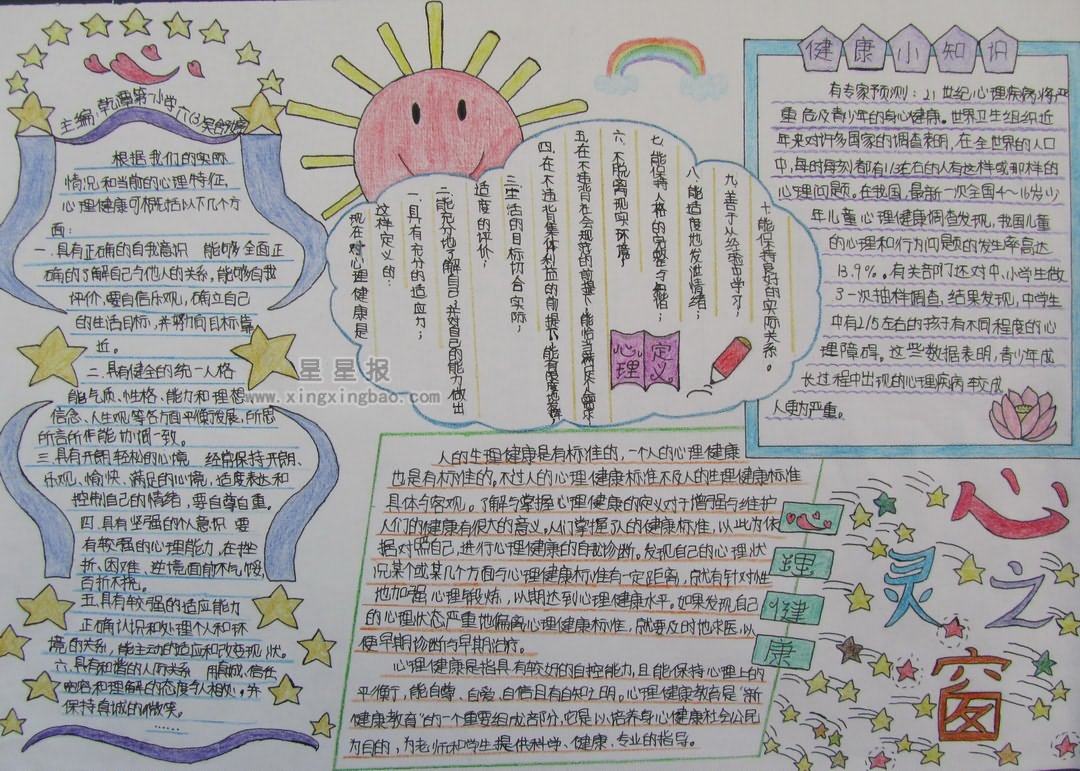 主编:乾潭第一小学
根据我们的实际
情况和当前的心理特征,
心理健康可概括以下几个方
面:
一.具有正确的自我意识 能够全面正
确的了解自己与他人的关系,能够自我
评价,要自信乐观,确立自己
的生活目标,并努力向目标靠
近。
二.具有健全的统一人格
能气质、性格、能力和理想
信念、人生观等各方面平衡发展,所思
所言所作能协调一致。
三.具有开朗轻松的心境 经常保持开朗、
乐观、愉快、满足的心境,适度表达和
控制自己的情绪,要自尊自重。
四.具有坚强的个人意识 要
有较强的心理能力,在挫
折、困难、逆境面前不气馁,
百折不挠。
五.具有较强的适应能力
正确认识和处理个人和环
境的关系,能主动的适应和改变现状。
六.具有和谐的人际关系 用真诚、信任
宽容和理解的态度与人相处,并
保持真诚的微笑。
……
现在对心理健康是
这样定义的:
一.具有充分的适应力;
二.能充分地了解自己,并对自己的能力做出
适度的评价;
三.生活的目标切合实际;
四.在不违背集体利益的前提下,能有限度地发挥
五.在不违背社会规范的前提下,能恰当满足个人需求
六.不脱离现实环境;
七.能保持人格的完整与和谐;
八.能适度地发泄情绪;
九.善于从经验中学习;
十.能保持良好的实际关系。
心理
定义。
健康小知识
有专家预测:21世纪心理疾病将严
重危及青少年的身心健康。世界卫生组织近
年来对许多国家的调查表明,在全世界的人口
中,每时每刻都有1/3左右的人有这样或那样的
心理问题。在我国,最新一次全国4~16岁少
年儿童心理健康调查发现,我国儿童
的心理和行为问题的发生率高达
13.9%。有关部门还对中,小学生做
了一次抽样调查,结果发现,中学生
中有2/5左右的孩子有不同程度的心
理障碍。这些数据表明,青少年成
长过程中出现的心理疾病较成
人更为严重。
人的生理健康是有标准的,一个人的心理健康
也是有标准的。不过人的心理健康标准不及人的生理健康标准
具体与客观。了解与掌握心理健康的定义对于增强与维护
人们的健康有很大的意义。人们掌握了人的健康标准,以此为依
据对照自己,进行心理健康的自我诊断。发现自己的心理状
况某个或某几个方面与心理健康标准有一定距离,就有针对性
地加强心理锻炼,以期达到心理健康水平。如果发现自己
的心理状态严重地偏离心理健康标准,就要及时地求医,以
便早期诊断与早期治疗。
心理健康是指具有较好的自控能力,且能保持心理上的
平衡行,能自尊、自爱、自信且有自知之明。心理健康教育是“新
健康教育”的一个重要组成部分,它是以培养身心健康社会公民
为目的,为老师和学生提供科学、健康、专业的指导。
理
健
康
心灵之窗
星星报
www.xingxingbao.com